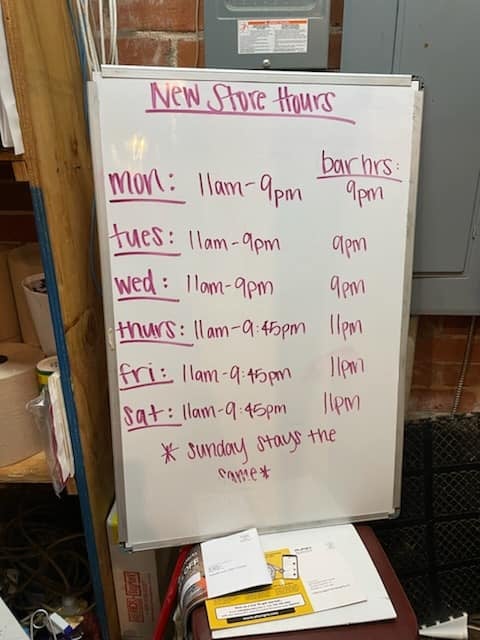 New Store Hours
bar hrs:
mon: 11am-9pm 9pm
tues: 11am-9pm 9pm
wed: 11am-9pm 9pm
thurs: 11am-9:45pm 11pm
fri: 11am-9:45pm 11pm
sat: 11am-9:45pm 11pm
* sunday stays the
same*